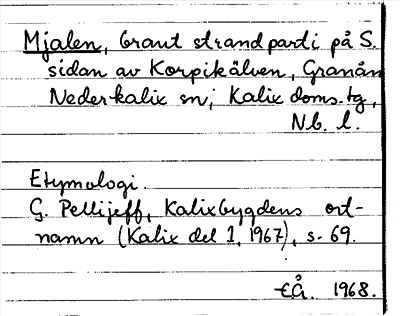 Mjalen, brant strandparti på S.
sidan av Korpikälven, Granån
Nederkalix sn; Kalix doms.tg,
Nb. l.
Etymologi.
G. Pellijeff, Kalixbygdens ort-
namn (Kalix del 1, 1967), s. 69.
EÅ. 1968.